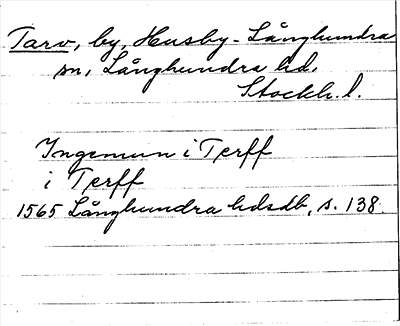 Tarv, by, Husby-Långhundra
sn, Långhundra hd.
Stockh. l.
Ingemun i Terff
i Terff
1565 Långhundra hdsdb, s. 138.